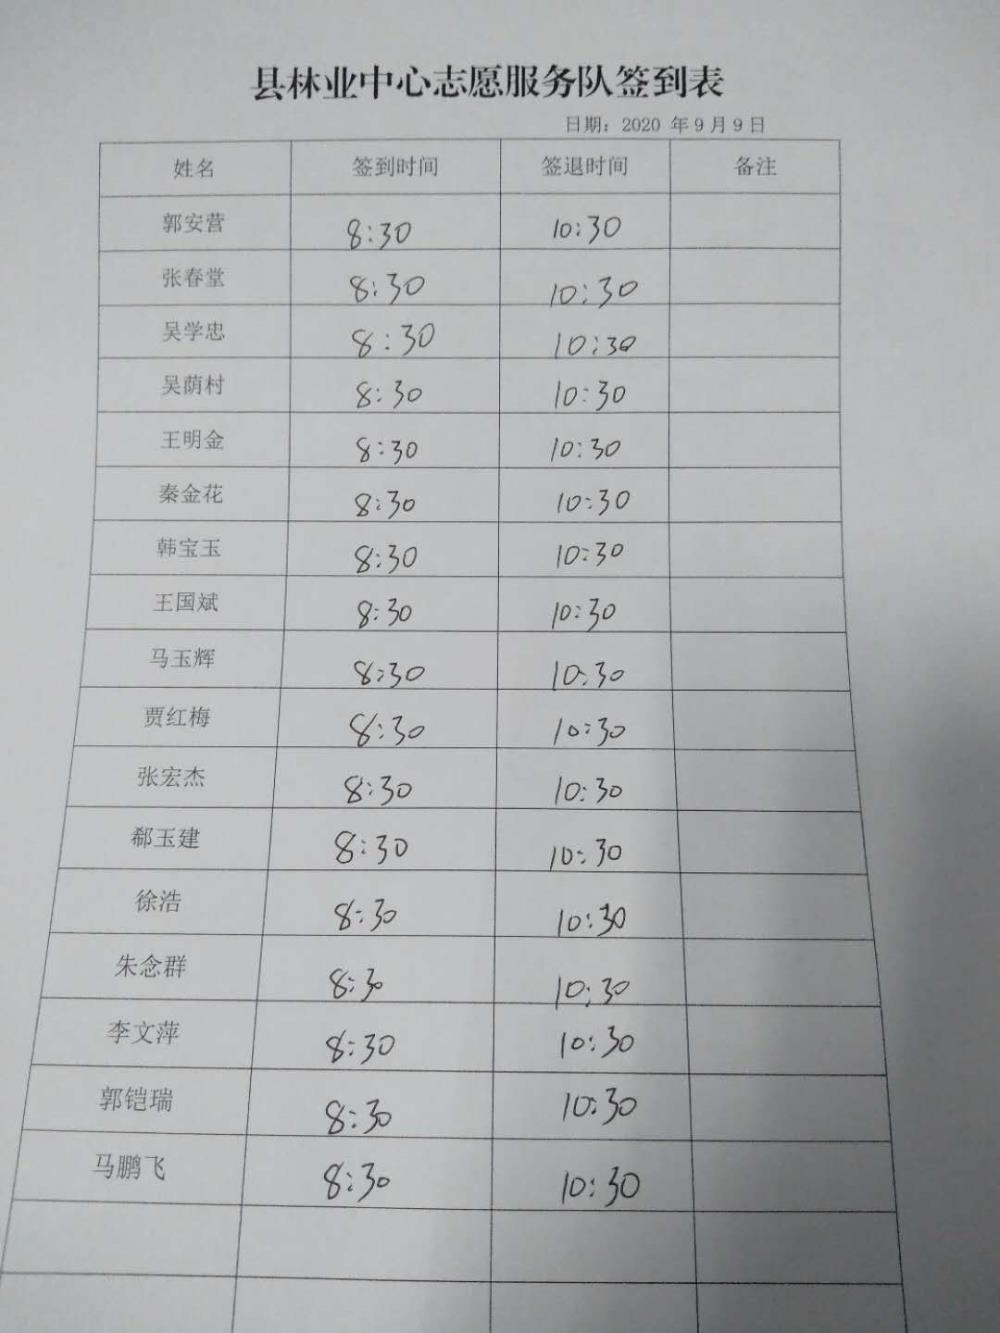 县林业中心志愿服务队签到表
日期：2020 年 9 月 9 日
姓名 签到时间 签退时间 备注
郭安营 8:30 10:30
张春堂 8:30 10:30
吴学忠 8:30 10:30
吴荫村 8:30 10:30
王明金 8:30 10:30
秦金花 8:30 10:30
韩宝玉 8:30 10:30
王国斌 8:30 10:30
马玉辉 8:30 10:30
贾红梅 8:30 10:30
张宏杰 8:30 10:30
郗玉建 8:30 10:30
徐浩 8:30 10:30
朱念群 8:30 10:30
李文萍 8:30 10:30
郭铠瑞 8:30 10:30
马鹏飞 8:30 10:30